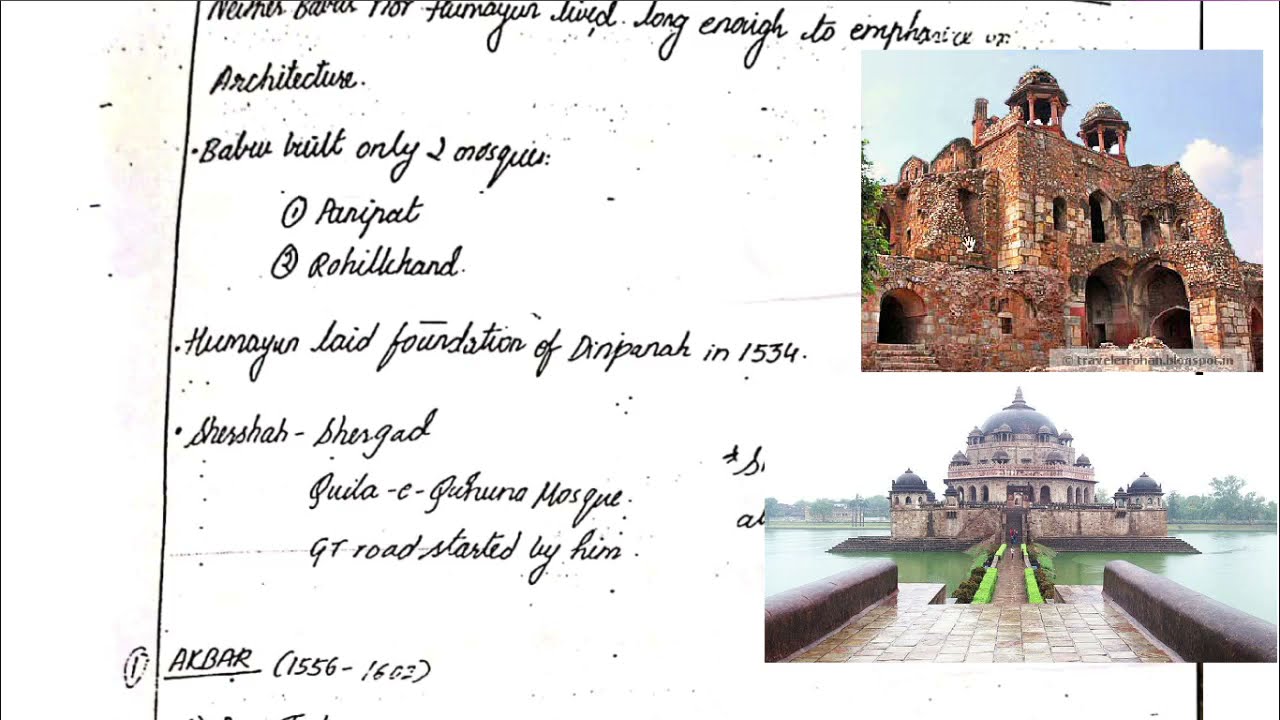 Neither Babar nor Humayun lived long enough to emphasize on
Architecture.
• Babur built only 2 mosques:
① Panipat
② Rohillkhand.
• Humayun laid foundation of Dinpanah in 1534.
• Shershah - Shergad
Quila-e-Quhuna Mosque.
GT road started by him.
① AKBAR (1556-1603)
© travelerrohan.blogspot.in